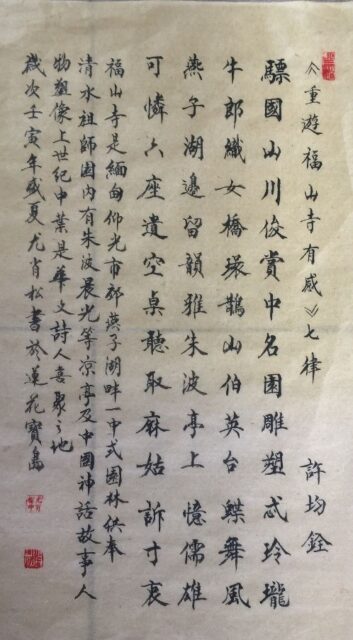 《重遊福山寺有感》七律 許均銓
驃國山川俊賞中名園雕塑忒玲瓏
牛郎織女橋環鵲山伯英台蝶舞風
燕子湖邊留韻雅朱波亭上憶儒雄
可憐六座遺空桌聽取麻姑訴寸衷
福山寺是緬甸仰光市郊燕子湖畔一中式園林供奉
清水祖師園內有朱波晨光等凉亭及中國神話故事人
物塑像上世紀中葉是華文詩人喜聚之地
歲次壬寅年盛夏尤肖松書於蓮花寶島